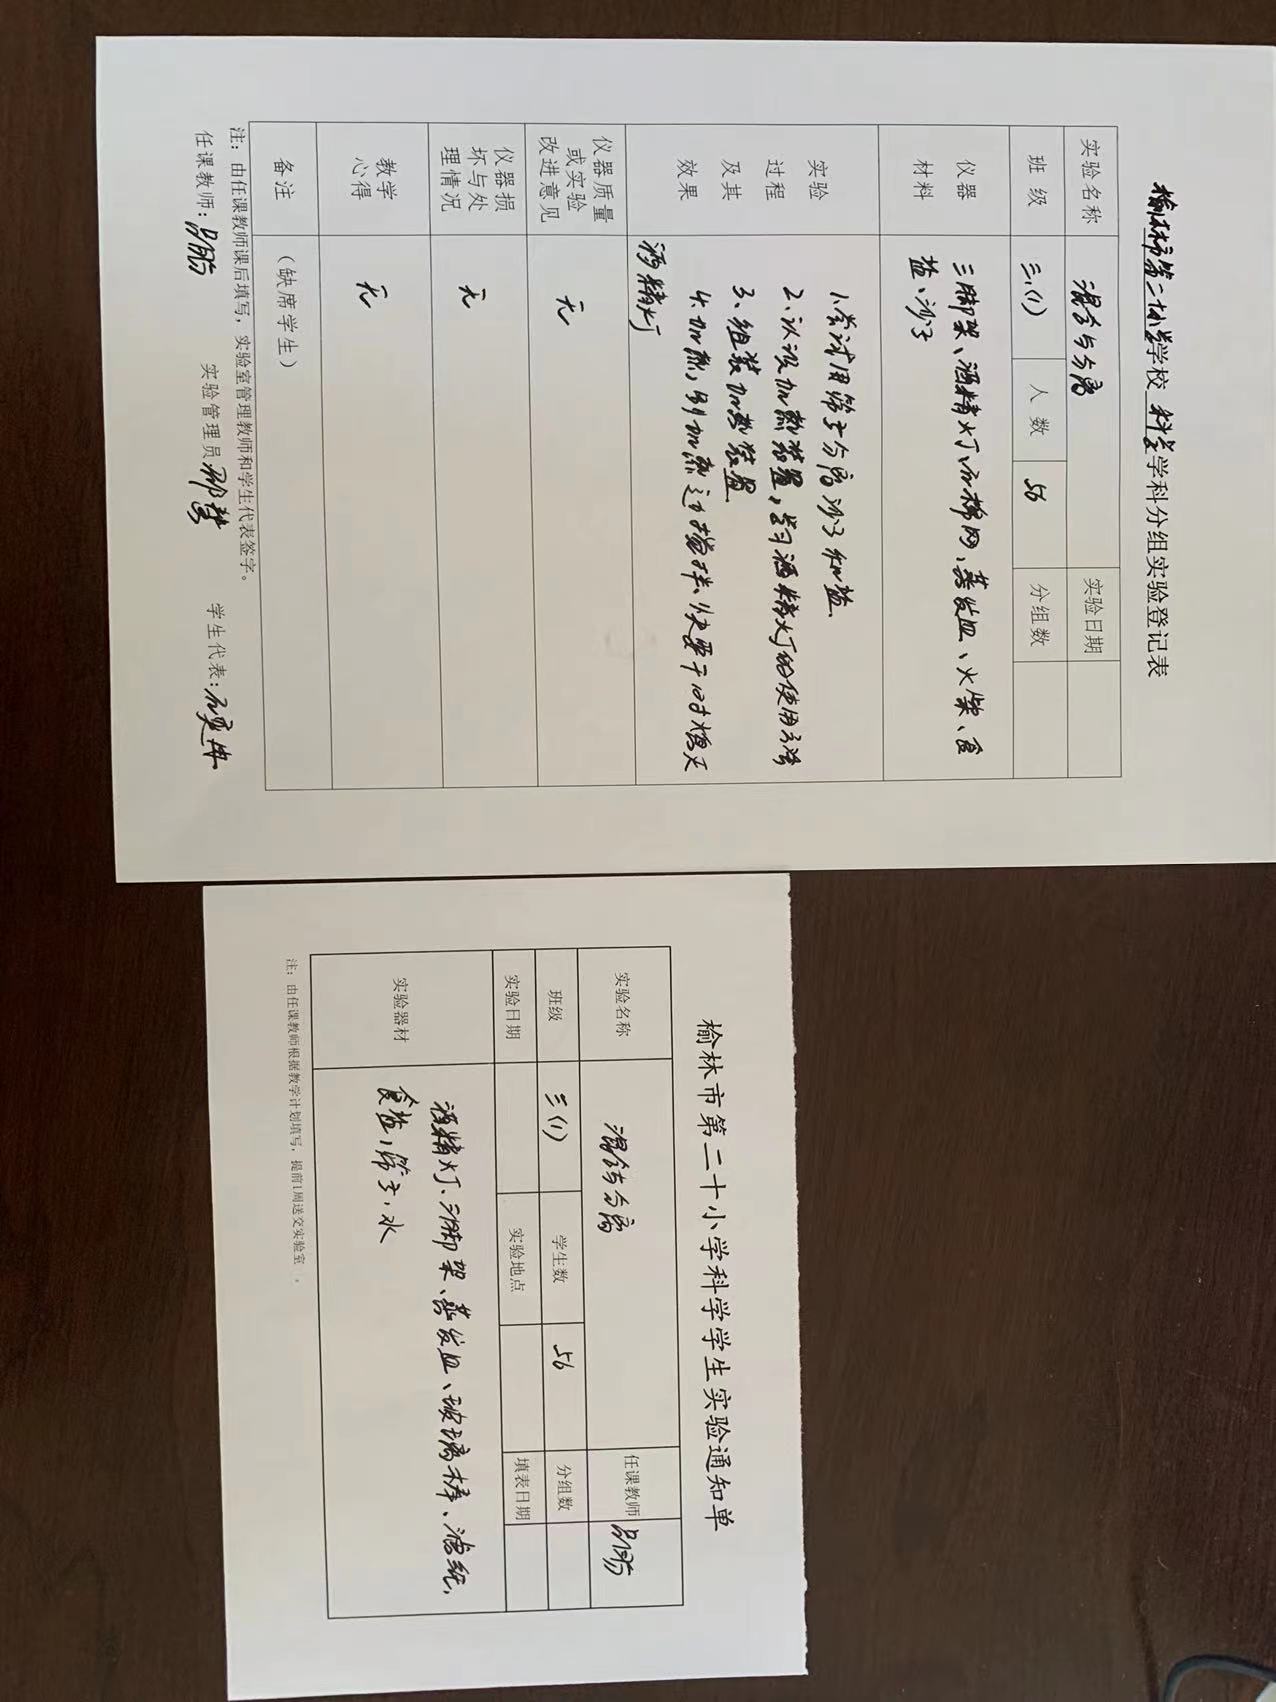 榆林市第二十小学学校 科学学科分组实验登记表
实验名称 混合与分离 实验日期
班级 三.(1) 人数 56 分组数
仪器材料 三脚架、酒精灯、石棉网、蒸发皿、火柴、食
盐、沙子
实验过程及其效果 1.尝试用筛子分离沙子和盐.
2、认识加热装置,学习酒精灯的使用方法
3、组装加热装置.
4.加热,边加热边搅拌、快要干时熄灭
酒精灯
仪器质量或实验改进意见 无
仪器损坏与处理情况 无
教学心得 无
备注 (缺席学生)
注：由任课教师课后填写，实验室管理教师和学生代表签字。
任课教师: 实验管理员 学生代表:
榆林市第二十小学科学学生实验通知单
实验名称 混合与分离 任课教师
班级 三(1) 学生数 56 分组数
实验日期 实验地点 填表日期
实验器材 酒精灯、三脚架、蒸发皿、玻璃棒、滤纸,
食盐,筛子,水
注：由任课教师根据教学计划填写，提前1周送交实验室。